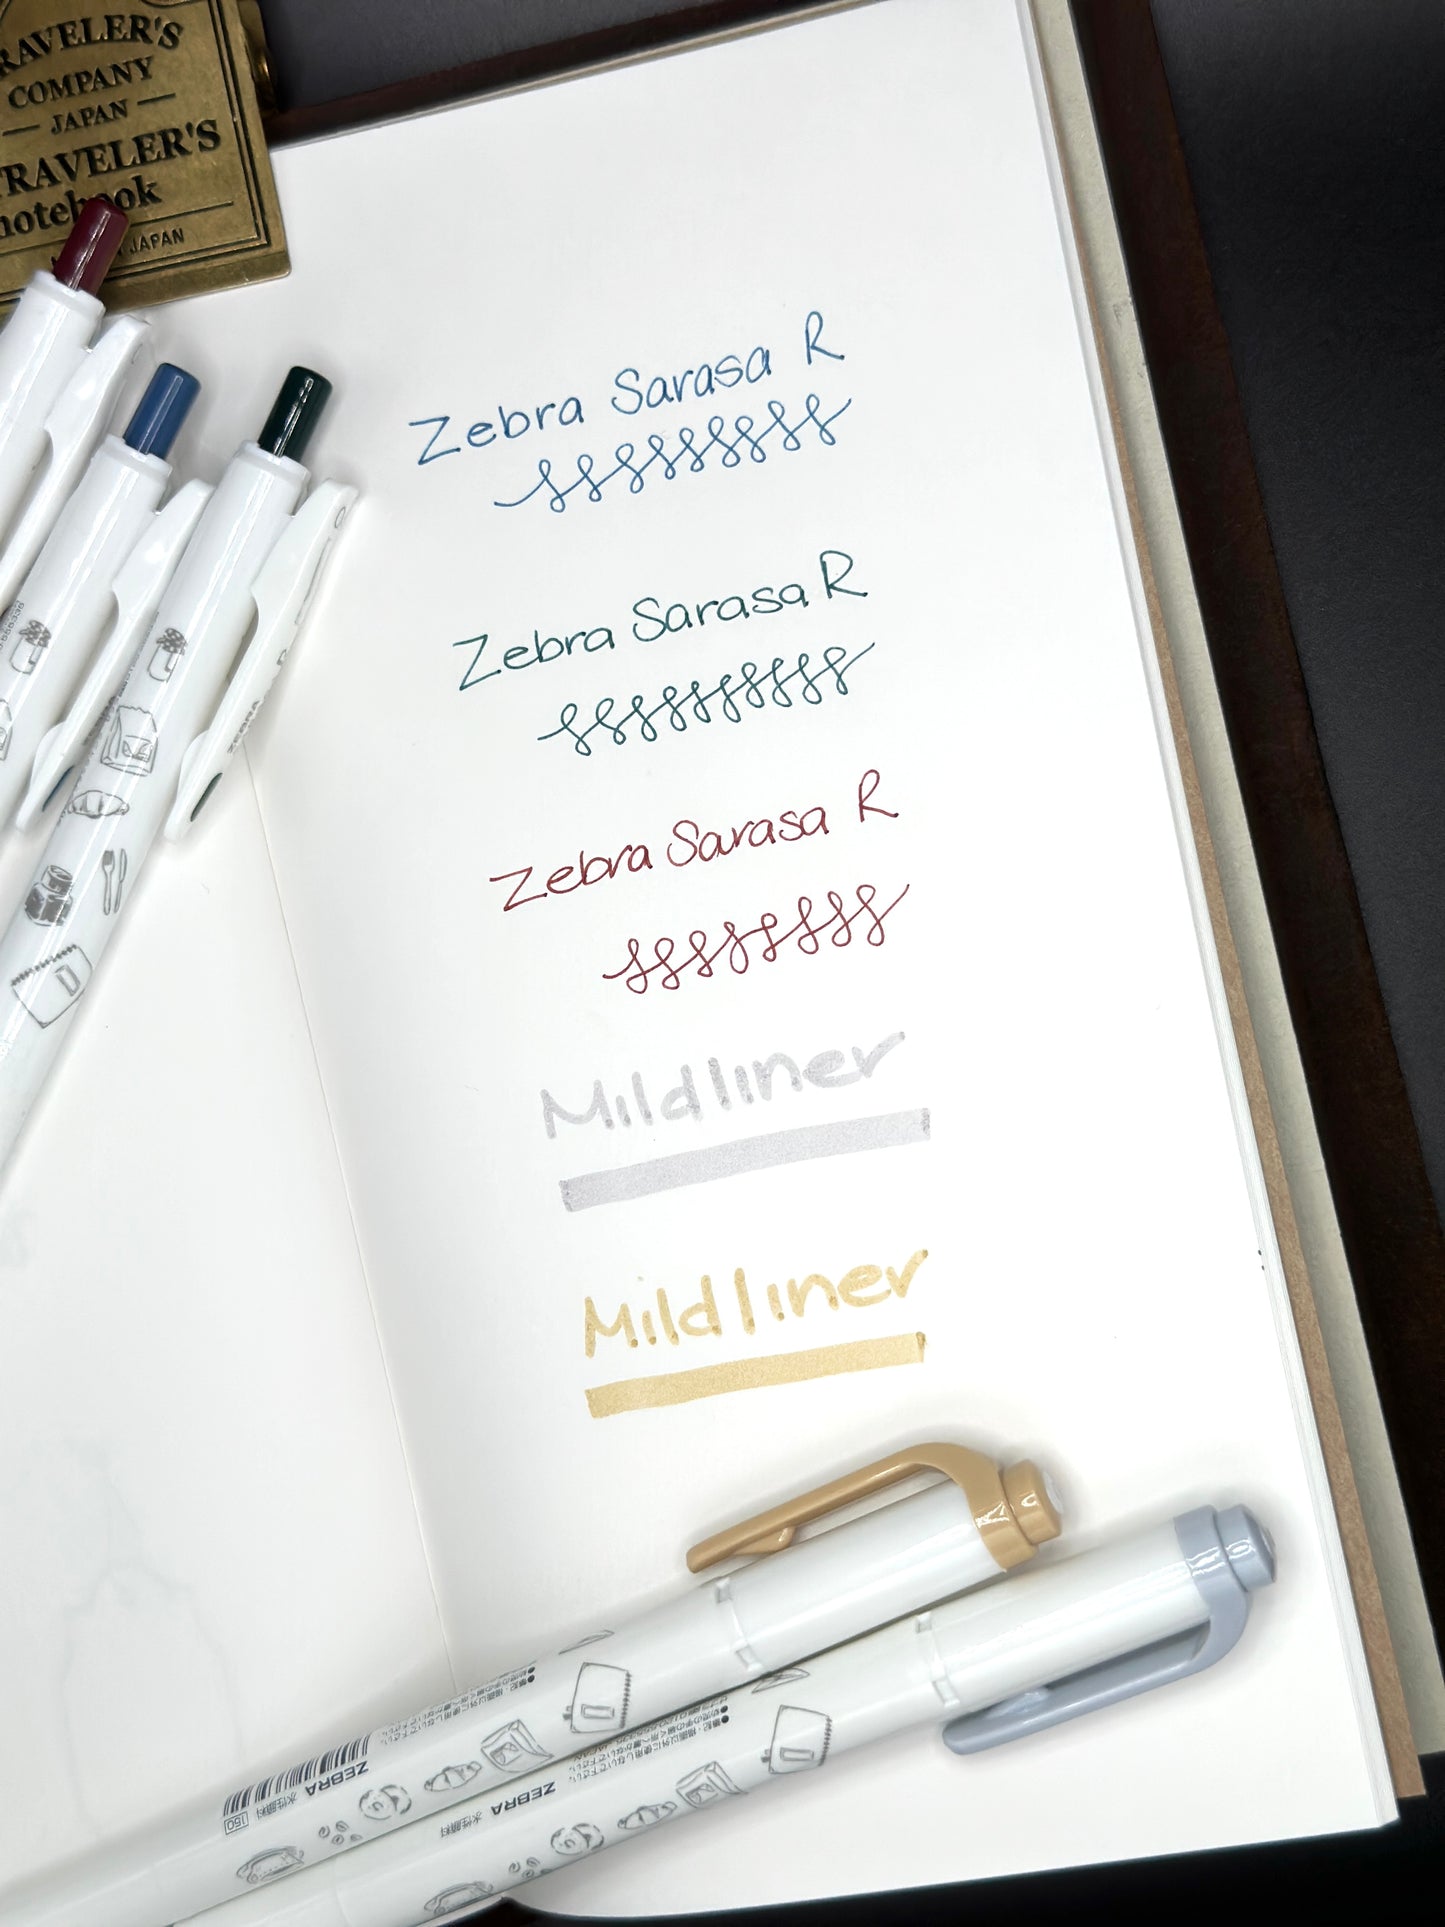 TRAVELER'S
COMPANY
JAPAN
TRAVELER'S
notebook
JAPAN
Zebra Sarasa R
Zebra Sarasa R
Zebra Sarasa R
Mildliner
Mildliner
ZEBRA
ZEBRA 水性顔料
150
ZEBRA 水性顔料